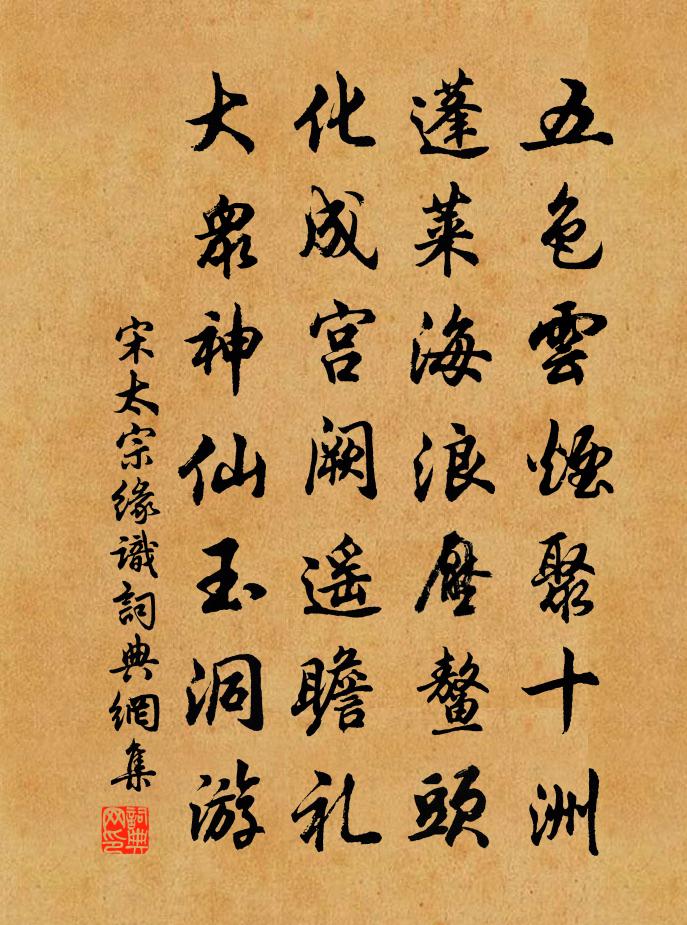 五色雲煙聚十洲
蓬萊海浪壓鼇頭
化成宮闕遥瞻礼
大眾神仙玉洞游
宋太宗緣識詞典網集
詞典网印